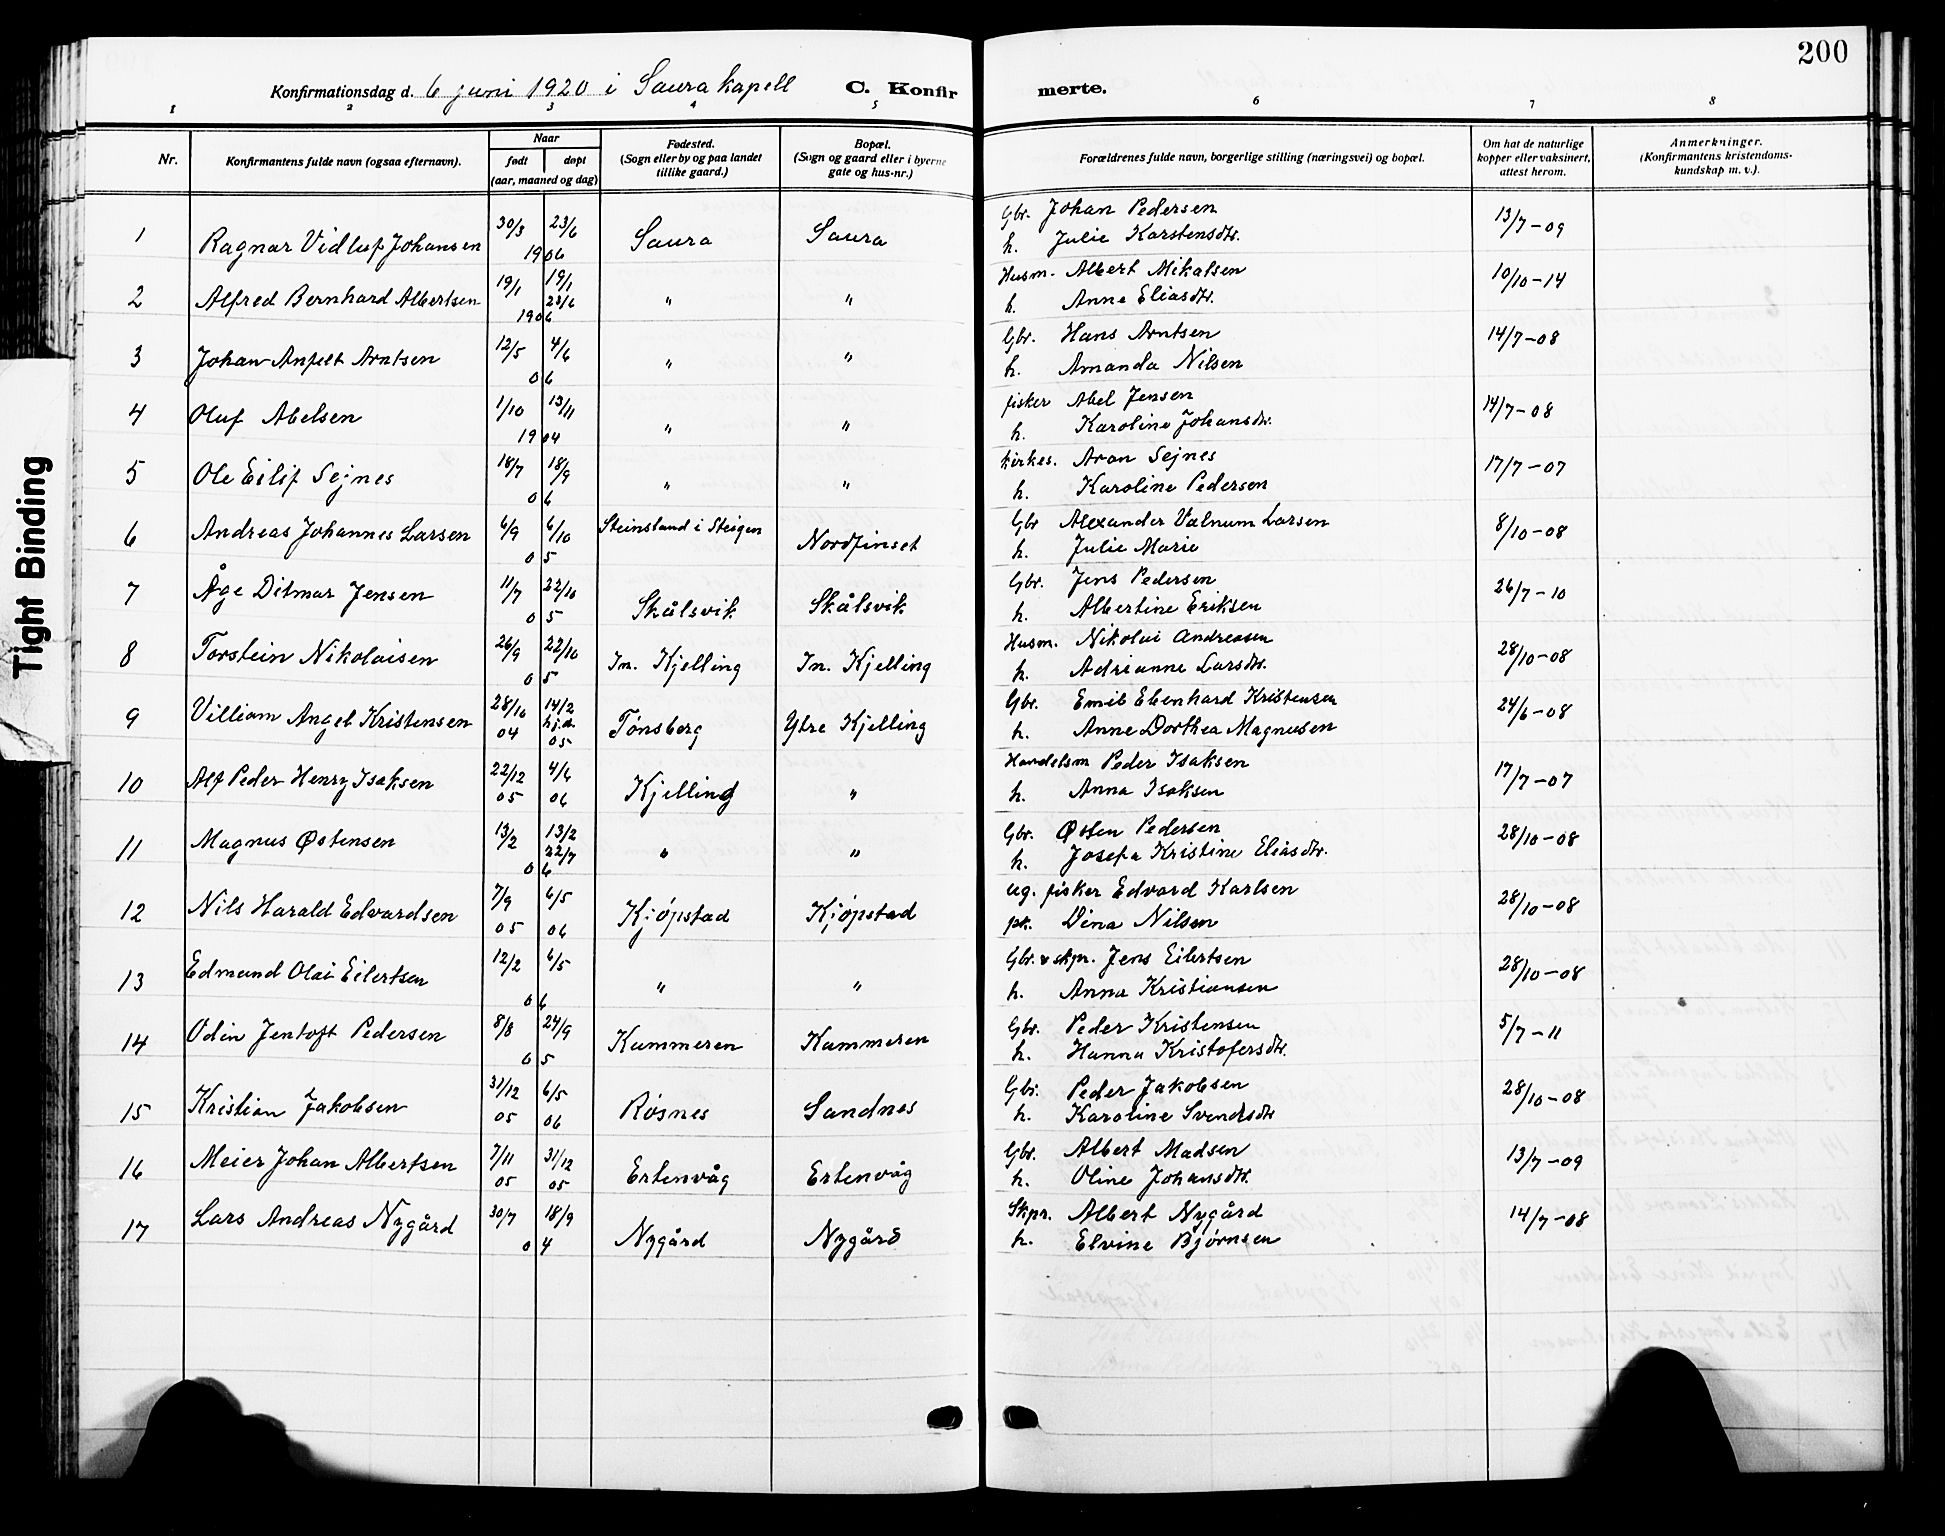 200
Konfirmationsdag d. 6 juni 1920 i Saura kapell C. Konfirmerte.
1 2 3 4 5 6 7 8
Nr. Konfirmantens fulde navn (ogsaa efternavn). Naar født døpt (aar, maaned og dag) Fødested. (Sogn eller by og paa landet tillike gaard.) Bopæl. (Sogn og gaard eller i byerne gate og hus-nr.) Forældrenes fulde navn, borgerlige stilling (næringsvei) og bopæl. Om hat de naturlige kopper eller vaksinert, attest herom. Anmerkninger. (Konfirmantens kristendoms-kundskap m. v.).
1 Ragnar Vidluf Johansen 30/3 23/6 1906 Saura Saura Gbr. Johan Pedersen 13/7-09
h. Julie Karstensdtr.
2 Alfred Bernhard Albertsen 19/1 19/1 23/6 1906 " " Husm. Albert Mikalsen 10/10-14
h. Anne Eliasdtr.
3 Johan Anfelt Arntsen 12/5 4/6 06 " " Gbr. Hans Arntsen 14/7-08
h. Amanda Nilsen
4 Oluf Abelsen 1/10 13/11 1904 " " fisker Abel Jensen 14/7-08
h. Karoline Johansdtr.
5 Ole Eilif Sejnes 18/7 18/9 06 " " kirkes. Aron Sejnes 17/7-07
h. Karoline Pedersen
6 Andreas Johannes Larsen 6/9 6/10 05 Steinsland i Steigen Nordfinset Gbr Alexander Valnum Larsen 8/10-08
h. Julie Marie
7 Åge Ditmar Jensen 11/7 22/10 05 Skålsvik Skålsvik Gbr. Jens Pedersen 26/7-10
h. Albertine Eriksen
8 Torstein Nikolaisen 26/9 22/10 05 In. Kjelling In. Kjelling Husm. Nikolai Andreasen 28/10-08
h. Adrianne Larsdtr.
9 Villiam Angel Kristensen 28/10 04 14/2 hj.d. 05 Tønsberg Ytre Kjelling Gbr. Emil Ebenhard Kristensen 24/6-08
h. Anne Dorthea Magnusen
10 Alf Peder Henry Isaksen 22/12 05 4/6 06 Kjelling " Handelsm Peder Isaksen 17/7-07
h. Anna Isaksen
11 Magnus Østensen 13/2 13/2 22/7 06 " " Gbr. Østen Pedersen 28/10-08
h. Josefa Kristine Eliasdtr.
12 Nils Harald Edvardsen 7/9 05 6/5 06 Kjøpstad Kjøpstad ug. fisker Edvard Karlsen 28/10-08
pk. Dina Nilsen
13 Edmund Olai Eilertsen 12/2 6/5 06 " " Gbr. & skpr. Jens Eilertsen 28/10-08
h. Anna Kristiansen
14 Odin Jentoft Pedersen 8/8 24/9 05 Kummeren Kummeren Gbr. Peder Kristensen 5/7-11
h. Hanna Kristofersdtr.
15 Kristian Jakobsen 31/12 05 6/5 06 Røsnes Sandnes Gbr. Peder Jakobsen 28/10-08
h. Karoline Svendsdtr
16 Meier Johan Albertsen 7/11 05 31/12 05 Ertenvåg Ertenvåg Gbr. Albert Madsen 13/7-09
h. Oline Johansdtr.
17 Lars Andreas Nygård 30/7 18/9 04 Nygård Nygård Skpr. Albert Nygård 14/7-08
h. Elvine Bjørnsen
Tight Binding